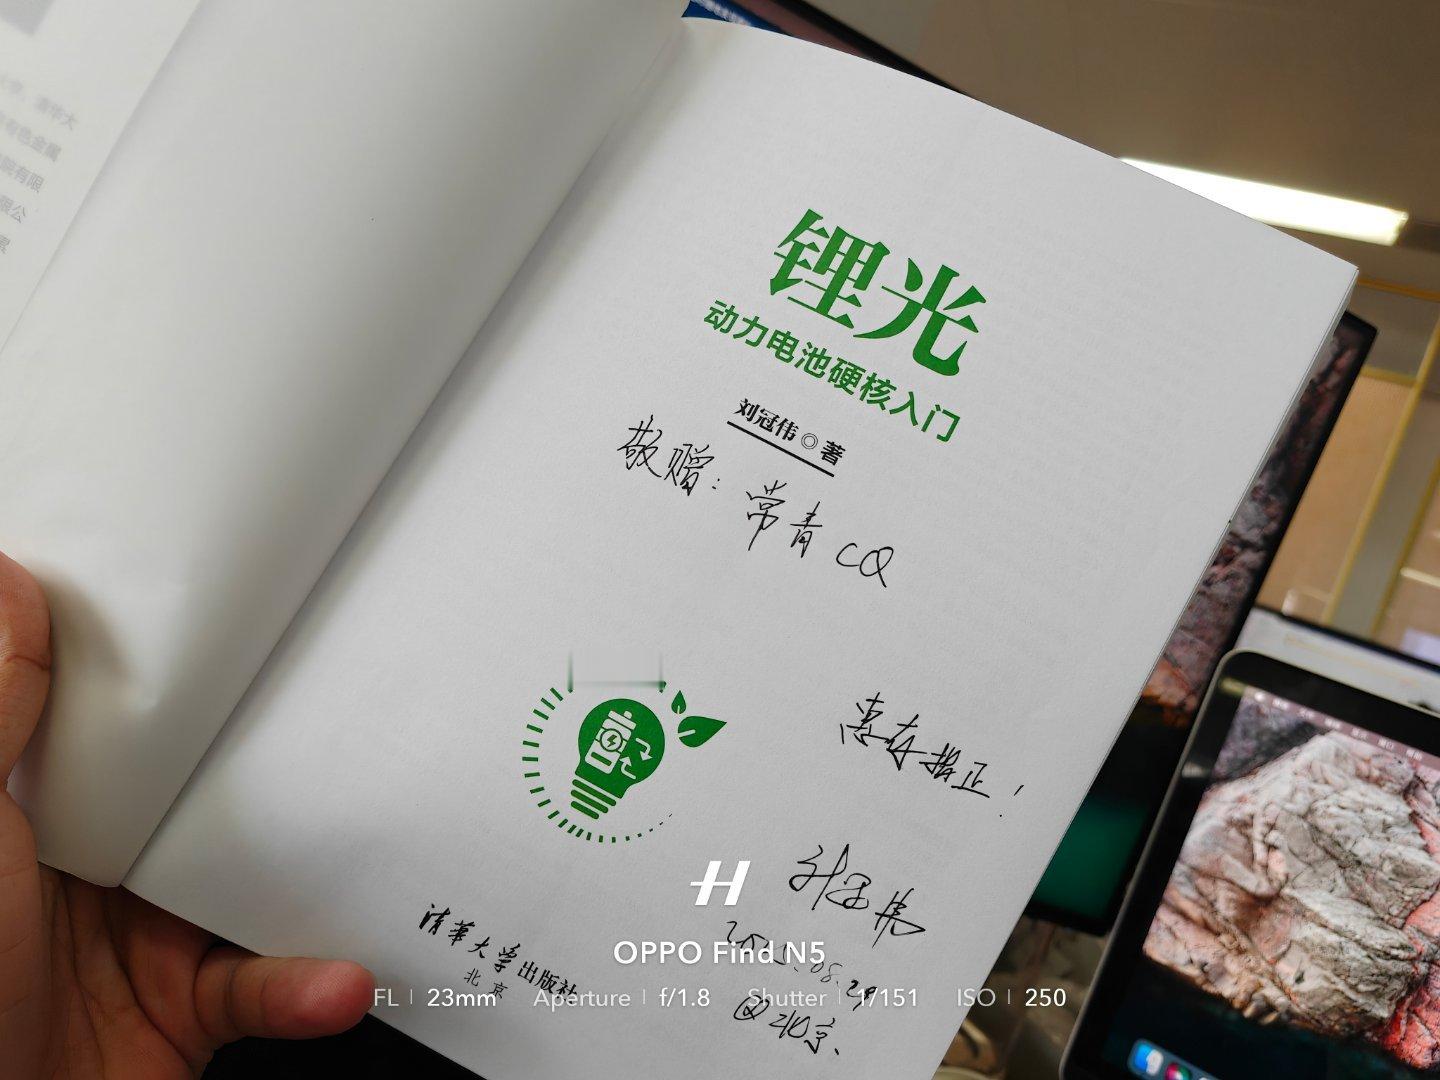 锂光
动力电池硬核入门
刘冠伟◎著
敬赠：常青 CQ
惠存指正！
刘冠伟
2025.08.29
@北京.
清华大学出版社
北京
H
OPPO Find N5
FL | 23mm Aperture | f/1.8 Shutter | 1/151 ISO | 250
有色金属
院有限
限公